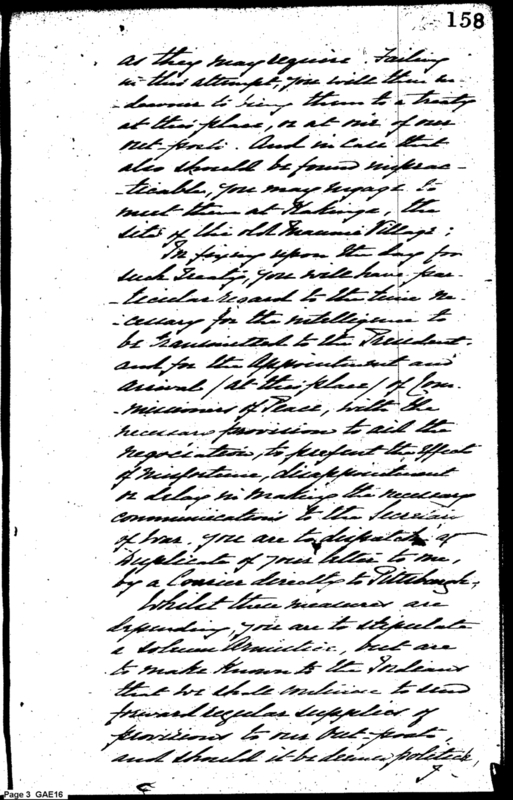 158
as they may require. Failing
in this attempt, you will then en-
-deavour to bring them to a treaty
at this place, or at one of our
out-posts. And in case that
also should be found imprac-
-ticable, you may engage to
meet them at Kakinga, the
site of the old Miamie Village;
In fixing upon the day for
such Treaty, you will have par-
-ticular regard to the time ne-
-cessary for the intelligence to
be transmitted to the President
and for the appointment and
arrival (at this place) of Com-
-missioners of Peace, with the
necessary provision to aid the
negociation, to prevent the effects
of misfortune, disappointment
or delay in making the necessary
communications to the Secretary
of War. you are to dispatch a
Duplicate of your letter to me,
by a Courier directly to Pittsburgh,
Whilst these measures are
depending, you are to stipulate
a solemn Armistice, but are
to make known to the Indians
that we shall continue to send
forward regular supplies of
provisions to our Out-posts,
and should it be deemed politick,
Page 3 GAE16